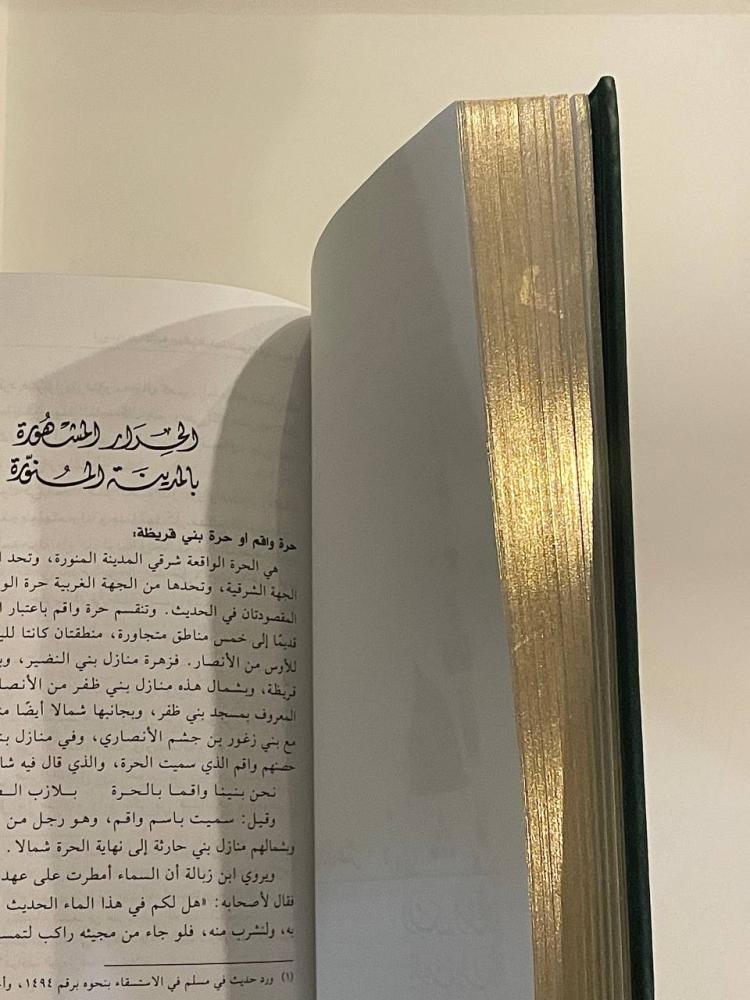 الحرار المشهورة
بالمدينة المنورة
حرة واقم او حرة بني قريظة:
هي الحرة الواقعة شرقي المدينة المنورة، وتحد
الجهة الشرقية، وتحدها من الجهة الغربية حرة
المقصودتان في الحديث. وتنقسم حرة واقم باعتبار
قديمًا إلى خمس مناطق متجاورة، منطقتان كانتا
للأوس من الأنصار. فزهرة منازل بني النضير،
قريظة، وبشمال هذه منازل بني ظفر من
المعروف بمسجد بني ظفر، وبجانبها شمالا أيضًا
مع بني زغور بن جشم الأنصاري، وفي منازل
حصنهم واقم الذي سميت الحرة، والذي قال فيه
نحن بنينا واقما بالحرة بلازب
وقيل: سميت باسم واقم، وهو رجل من
وبشمالهم منازل بني حارثة إلى نهاية الحرة شمالا.
ويروي ابن زبالة أن السماء أمطرت على عهد
فقال لأصحابه: «هل لكم في هذا الماء الحديث
به، ولنشرب منه، فلو جاء من مجيئه راكب
(١) ورد حديث في مسلم في الاستسقاء بنحوه برقم ١٤٩٤،